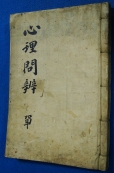 心理問辨
單